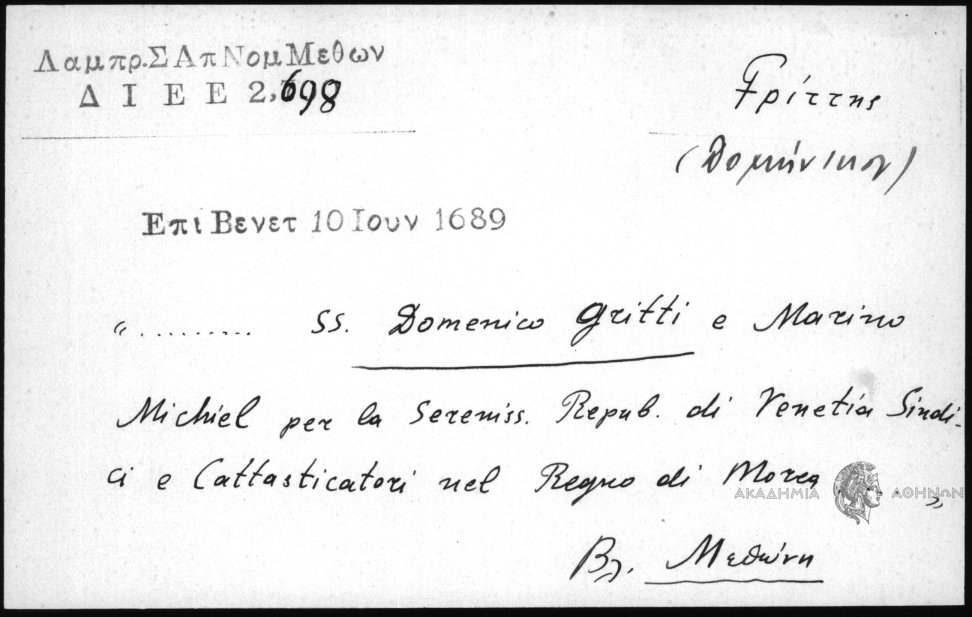 Λαμπρ.ΣΑπΝομΜεθων
Δ Ι Ε Ε 2,698
Γρίττης
(Δομήνικος)
Επι Βενετ 10 Ιουν 1689
“......... SS. Domenico Gritti e Marino
Michiel per la Sereniss. Repub. di Venetia Sindi-
ci e Cattasticatori nel Regno di Morea „
ΑΚΑΔΗΜΙΑ ΑΘΗΝΩΝ
Βλ. Μεθώνη